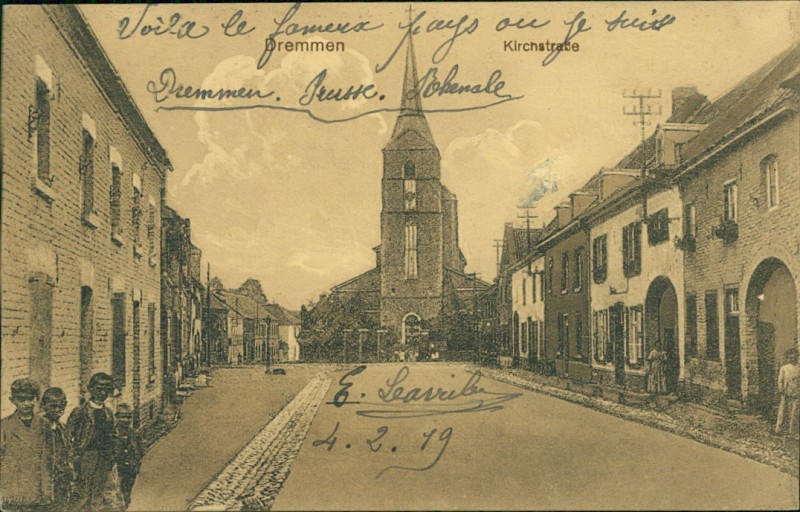 Voilà le fameux pays ou je suis
Dremmen Kirchstraße
Dremmen. Prusse. Rhenale
4.2.19